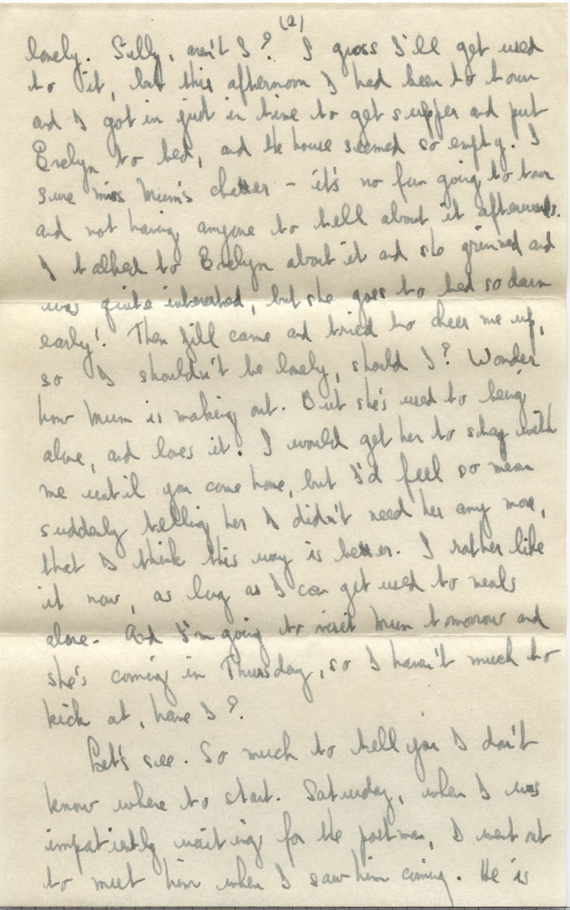 (2)
lonely. Silly, aren't I? I guess I'll get used
to it, but this afternoon I had been to town
and I got in just in time to get supper and put
Evelyn to bed, and the house seemed so empty. I
sure miss Mum's chatter - it's no fun going to town
and not having anyone to tell about it afterwards.
I talked to Evelyn about it and she grinned and
was quite interested, but she goes to bed so darn
early! Then Jill came and tried to cheer me up,
so I shouldn't be lonely, should I? Wonder
how Mum is making out. But she's used to being
alone, and loves it. I would get her to stay with
me until you come home, but I'd feel so mean
suddenly telling her I didn't need her any more,
that I think this way is better. I rather like
it now, as long as I can get used to meals
alone. And I'm going to visit Mum tomorrow and
she's coming in Thursday, so I haven't much to
kick at, have I?
Let's see. So much to tell you I don't
know where to start. Saturday, when I was
impatiently waiting for the postman, I went out
to meet him when I saw him coming. He is